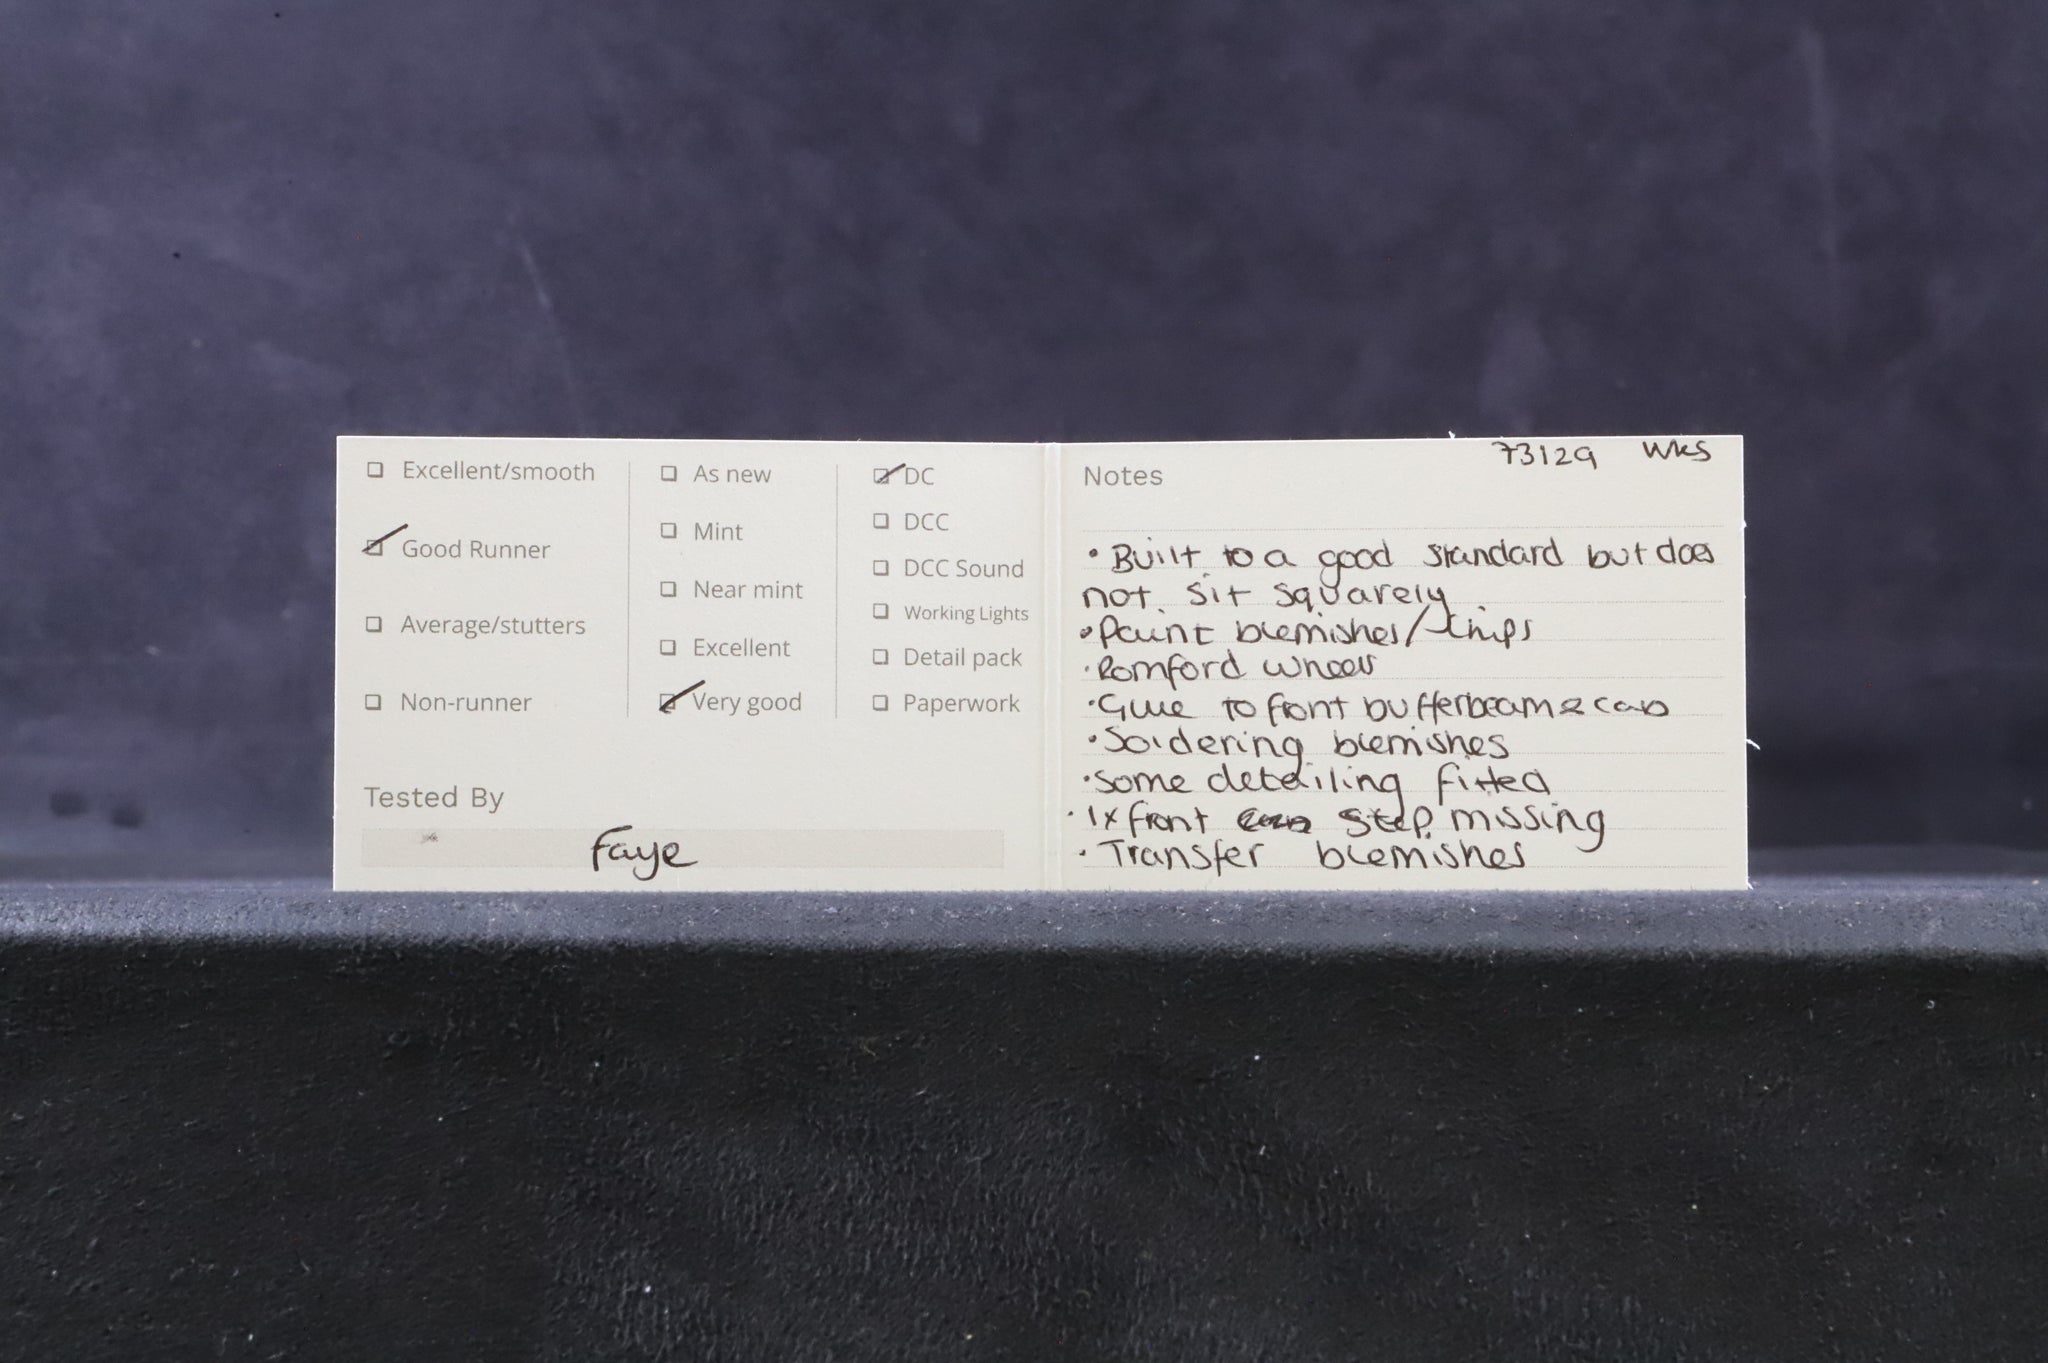 Excellent/smooth
Good Runner
Average/stutters
Non-runner
As new
Mint
Near mint
Excellent
Very good
DC
DCC
DCC Sound
Working Lights
Detail pack
Paperwork
Tested By
Faye
73129 WKS
Notes
• Built to a good standard but does
not sit squarely
• Paint blemishes/chips
• Romford wheels
• Glue to front bufferbeam & cab
• Soldering blemishes
• Some detailing fitted
• 1x front step missing
• Transfer blemishes